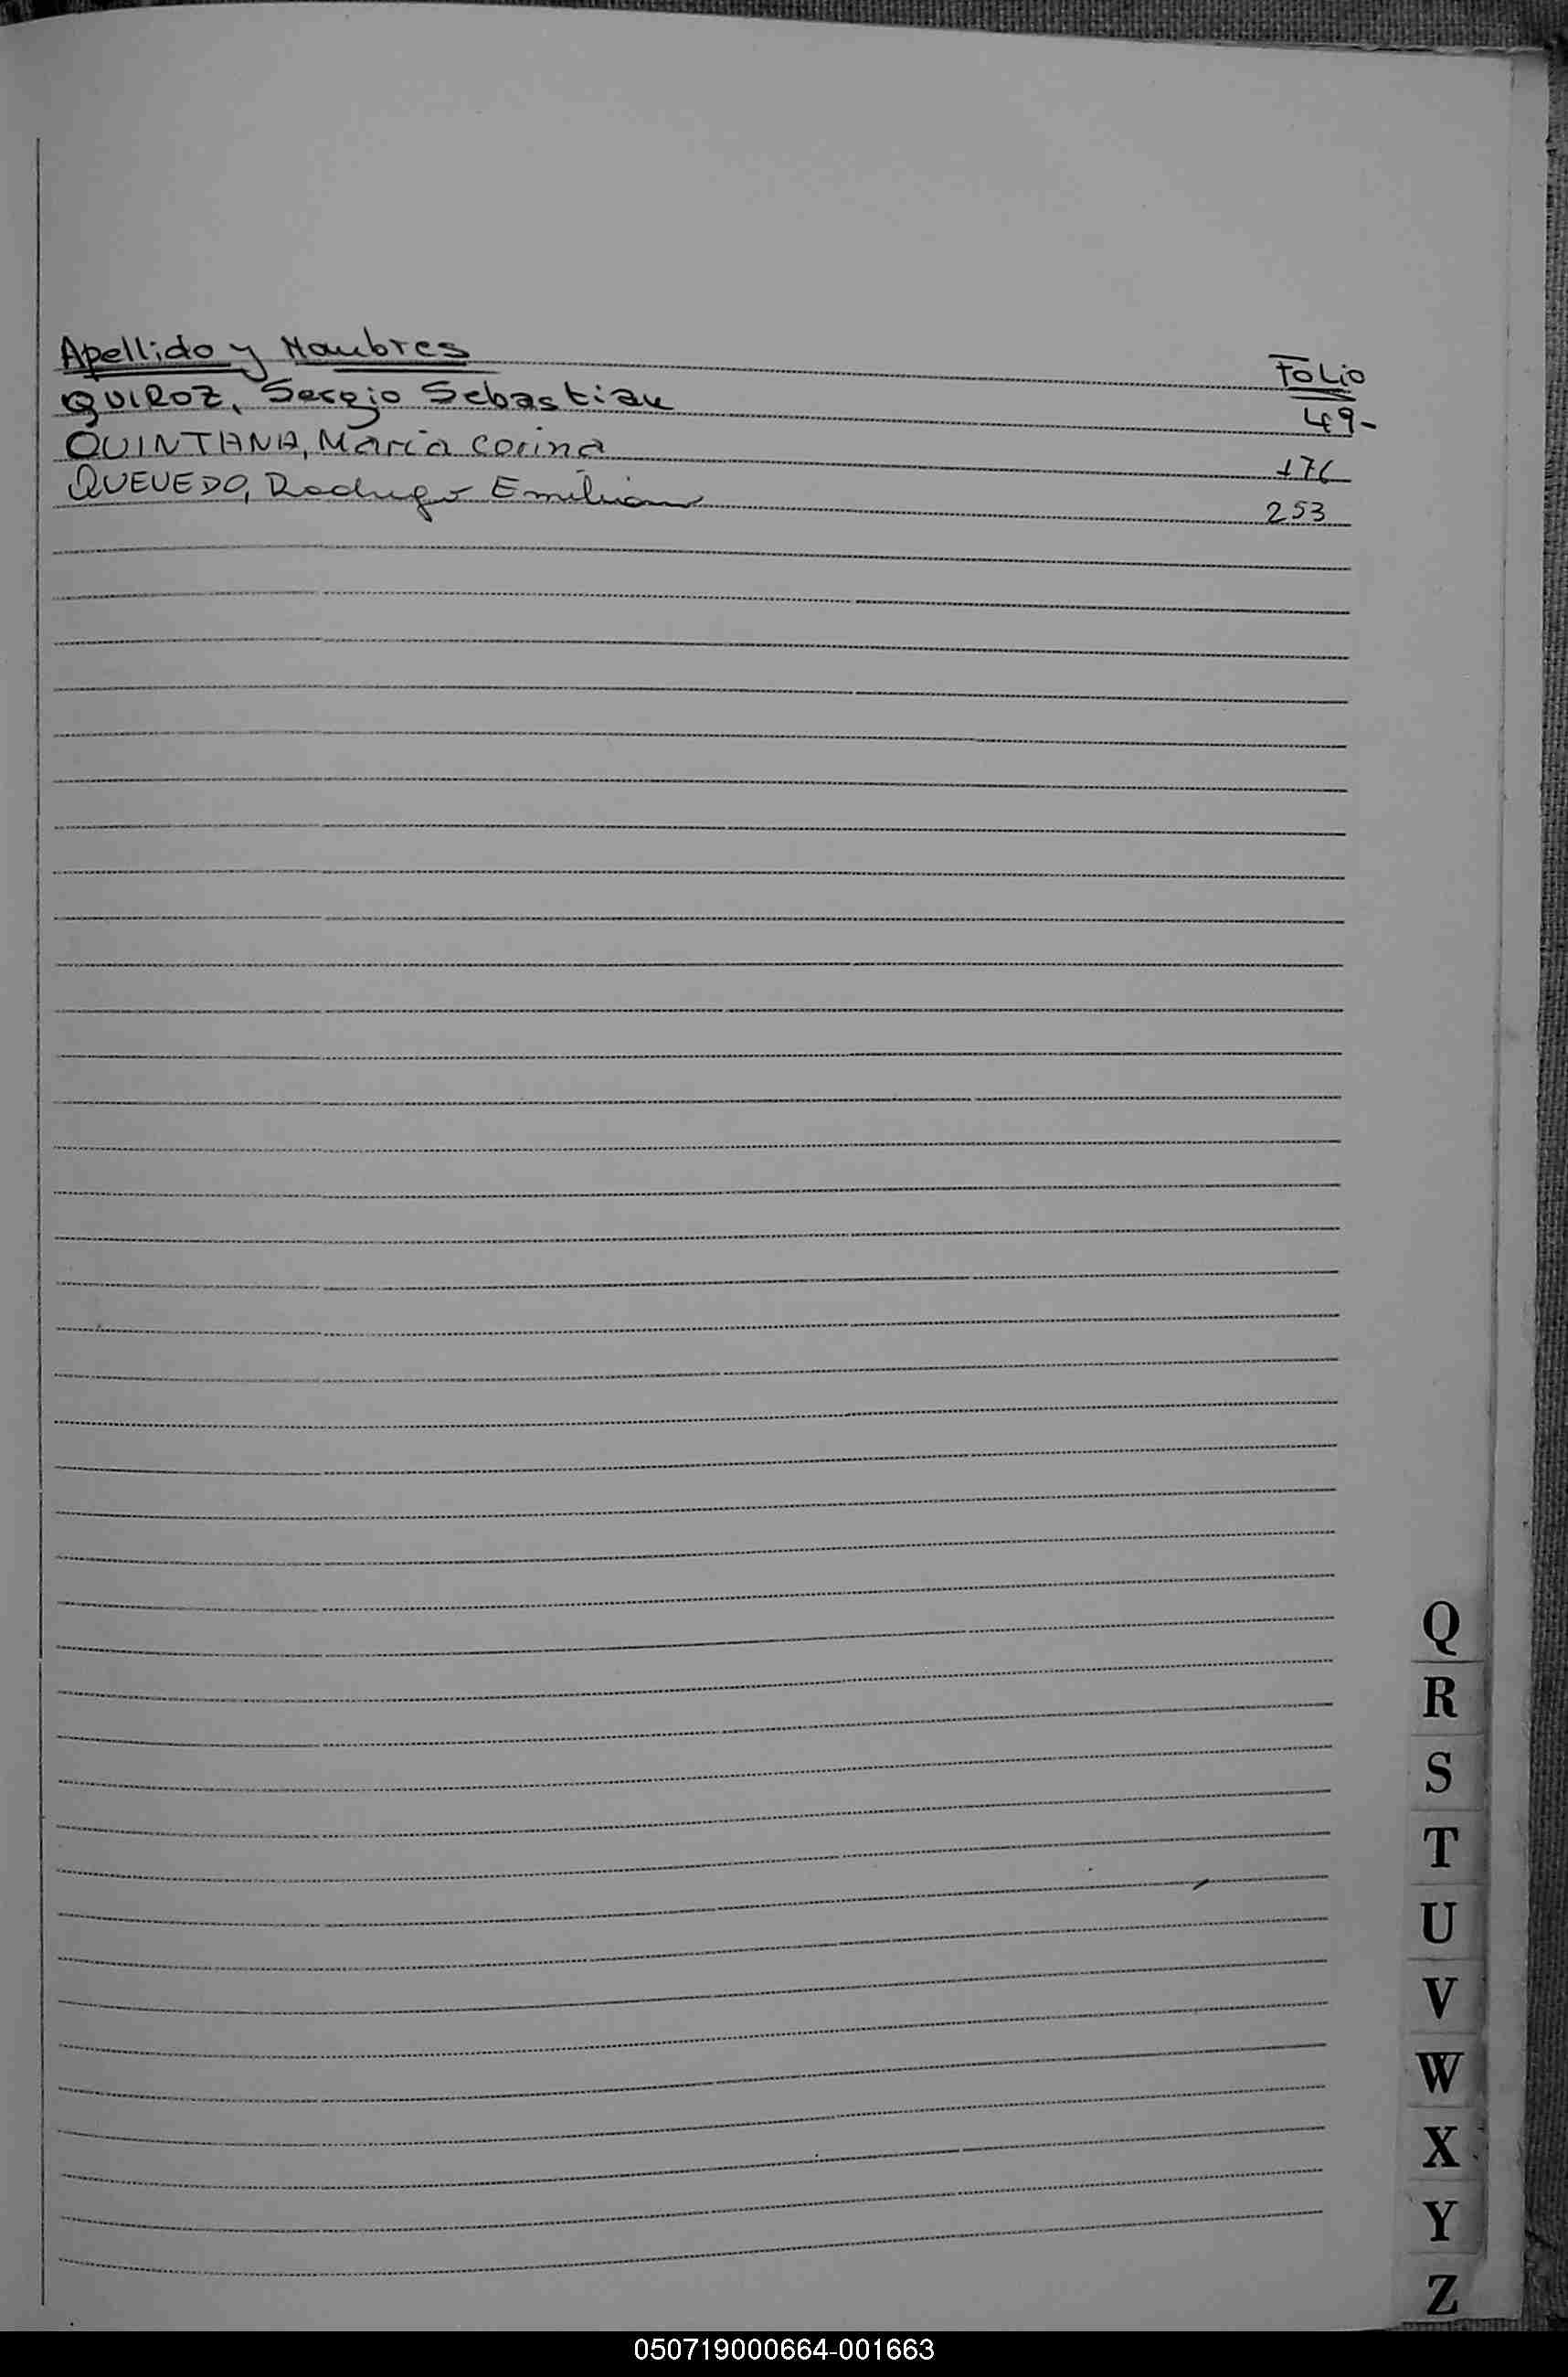 Apellido y Nombres Folio
QUIROZ, Sergio Sebastian 49-
QUINTANA, María Corina 176
QUEVEDO, Rodrigo Emiliano 253
Q
R
S
T
U
V
W
X
Y
Z
050719000664-001663